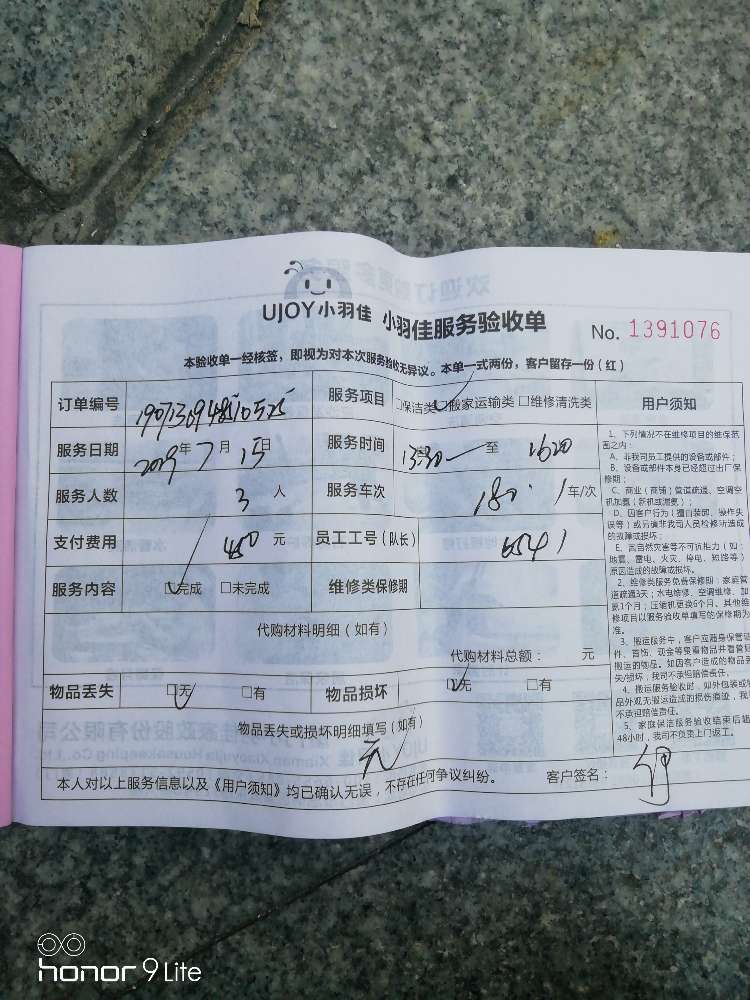 UJOY小羽佳 小羽佳服务验收单 No. 1391076
本验收单一经核签，即视为对本次服务验收无异议。本单一式两份，客户留存一份（红）
订单编号 服务项目 □保洁类 □搬家运输类 □维修清洗类 用户须知
服务日期 2019年7月15日 服务时间 13:30 至 1620
服务人数 3人 服务车次 180·1车/次
支付费用 450元 员工工号（队长） 6541
服务内容 □完成 □未完成 维修类保修期
代购材料明细（如有）
代购材料总额： 元
物品丢失 □无 □有 物品损坏 □无 □有
物品丢失或损坏明细填写（如有）
无
本人对以上服务信息以及《用户须知》均已确认无误，不存在任何争议纠纷。 客户签名：
1、下列情况不在维修项目的维保范
围之内：
A、非我司员工提供的设备或部件；
B、设备或部件本身已经超过出厂保
修期；
C、商业（商铺）管道疏通、空调空
机加氟（新机或漏氟）；
D、因客户行为（擅自装卸、操作失
误等）或另请非我司人员检修所造成
的故障或损坏；
E、高自然灾害等不可抗拒力（如：
地震、雷电、火灾、停电、短路等）
原因造成的故障或损坏。
2、维修类服务免费保修期：家庭管
道疏通3天；水电维修、空调维修、加
氟1个月；压缩机更换6个月，其他维
修项目以服务验收单填写的保修期为
准。
3、搬运服务中，客户应随身保管证
件、首饰、现金等贵重物品并看管好
搬运的物品。如因客户造成的物品丢
失/损坏，我司不承担赔偿责任。
4、搬运服务验收时，如外包装或物
品外观无搬运造成的损伤痕迹，我
不承担赔偿责任。
5、家庭保洁服务验收结束后超
48小时，我司不负责上门返工。
honor 9 Lite